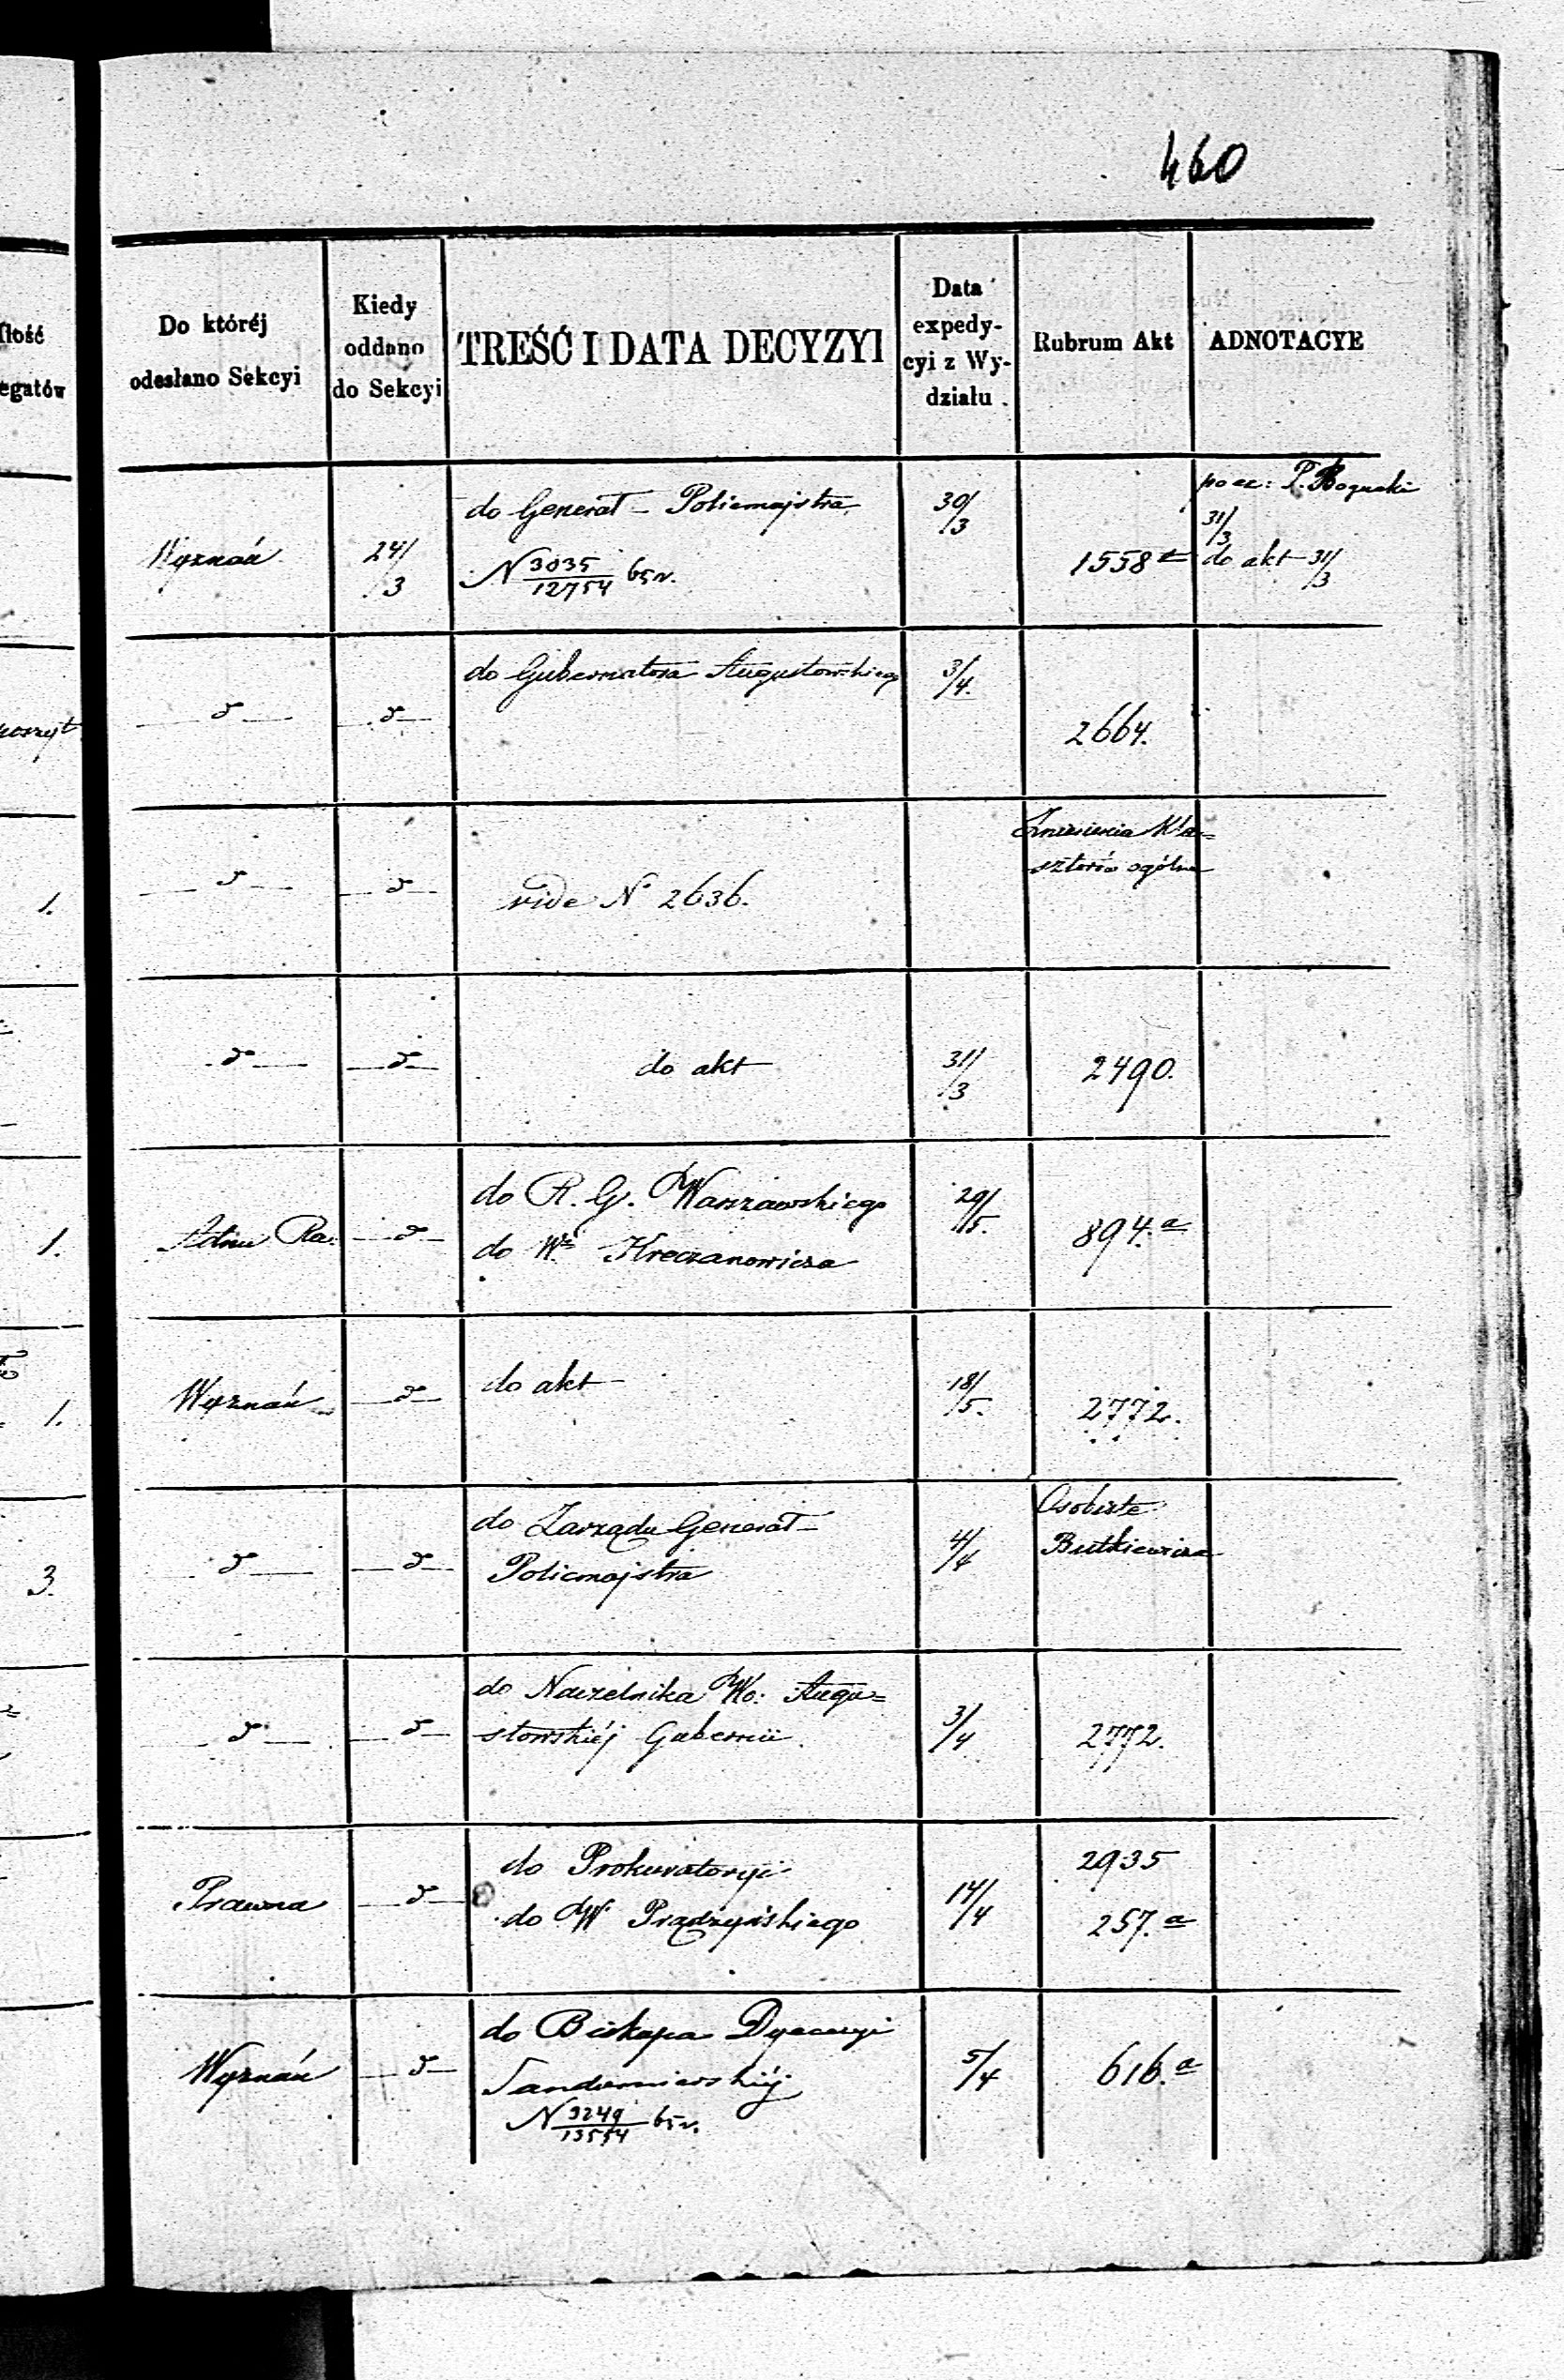 460
Ilość
egatów
Do któréj
odesłano Sekcyi
Kiedy
oddano
do Sekcyi
TREŚĆ I DATA DECYZYI
Data
expedy-
cyi z Wy-
działu
Rubrum Akt
ADNOTACYE
Wyznań
24/3
do Generał-Policmajstra
N 3035/12754 65 r.
30/3
1558 a
pocz: P. Bogucki
31/3
do akt 31/3
d
d
do Gubernatora Augustowskiego
3/4.
2664.
1.
d
d
vide N 2636.
Zniesienia Kla=
sztorów ogólne
d
d
do akt
31/3
2490.
1.
d
do R. G. Warszawskiego
do W. Kreczanowicza
29/5.
894. a
1.
Wyznań
d
do akt
18/5.
2772.
3.
d
d
do Zarządu Generał-
Policmajstra
4/4
Osobiste
Butkiewicza
d
d
do Naczelnika Wo: Augu=
stowskiéj Gubernii.
3/4
2772.
Prawna
d
do Prokuratoryi
do W Prądzyńskiego
14/4
2935
257. a
Wyznań
d
do Biskupa Dyecezyi
Sandomierskiéj
N 3249/13554 65 r.
5/4
616. a